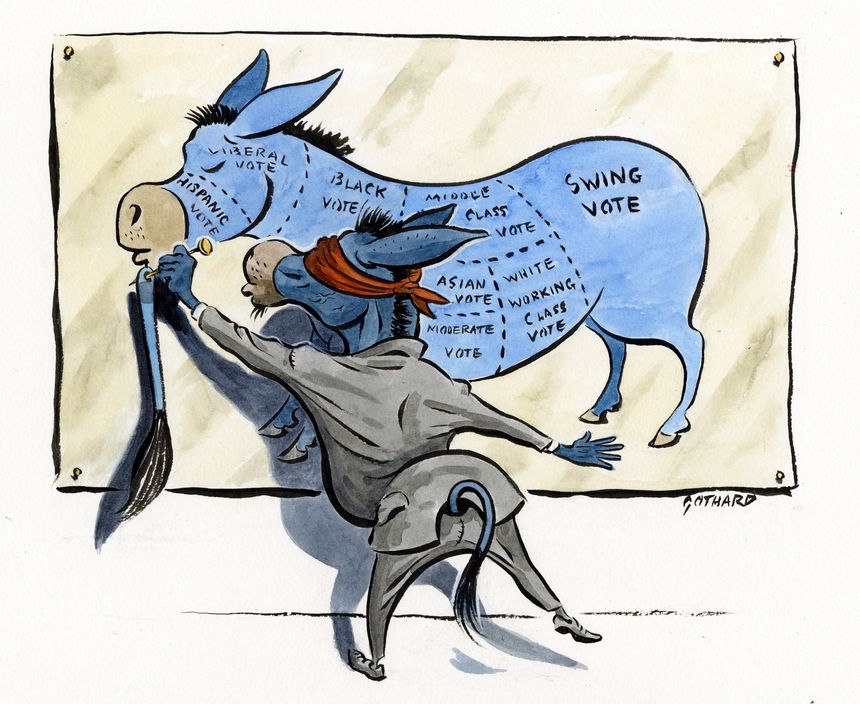 LIBERAL
VOTE
HISPANIC
VOTE
BLACK
VOTE
MIDDLE
CLASS
VOTE
SWING
VOTE
ASIAN
VOTE
WHITE
WORKING
CLASS
VOTE
MODERATE
VOTE
GOTHARD